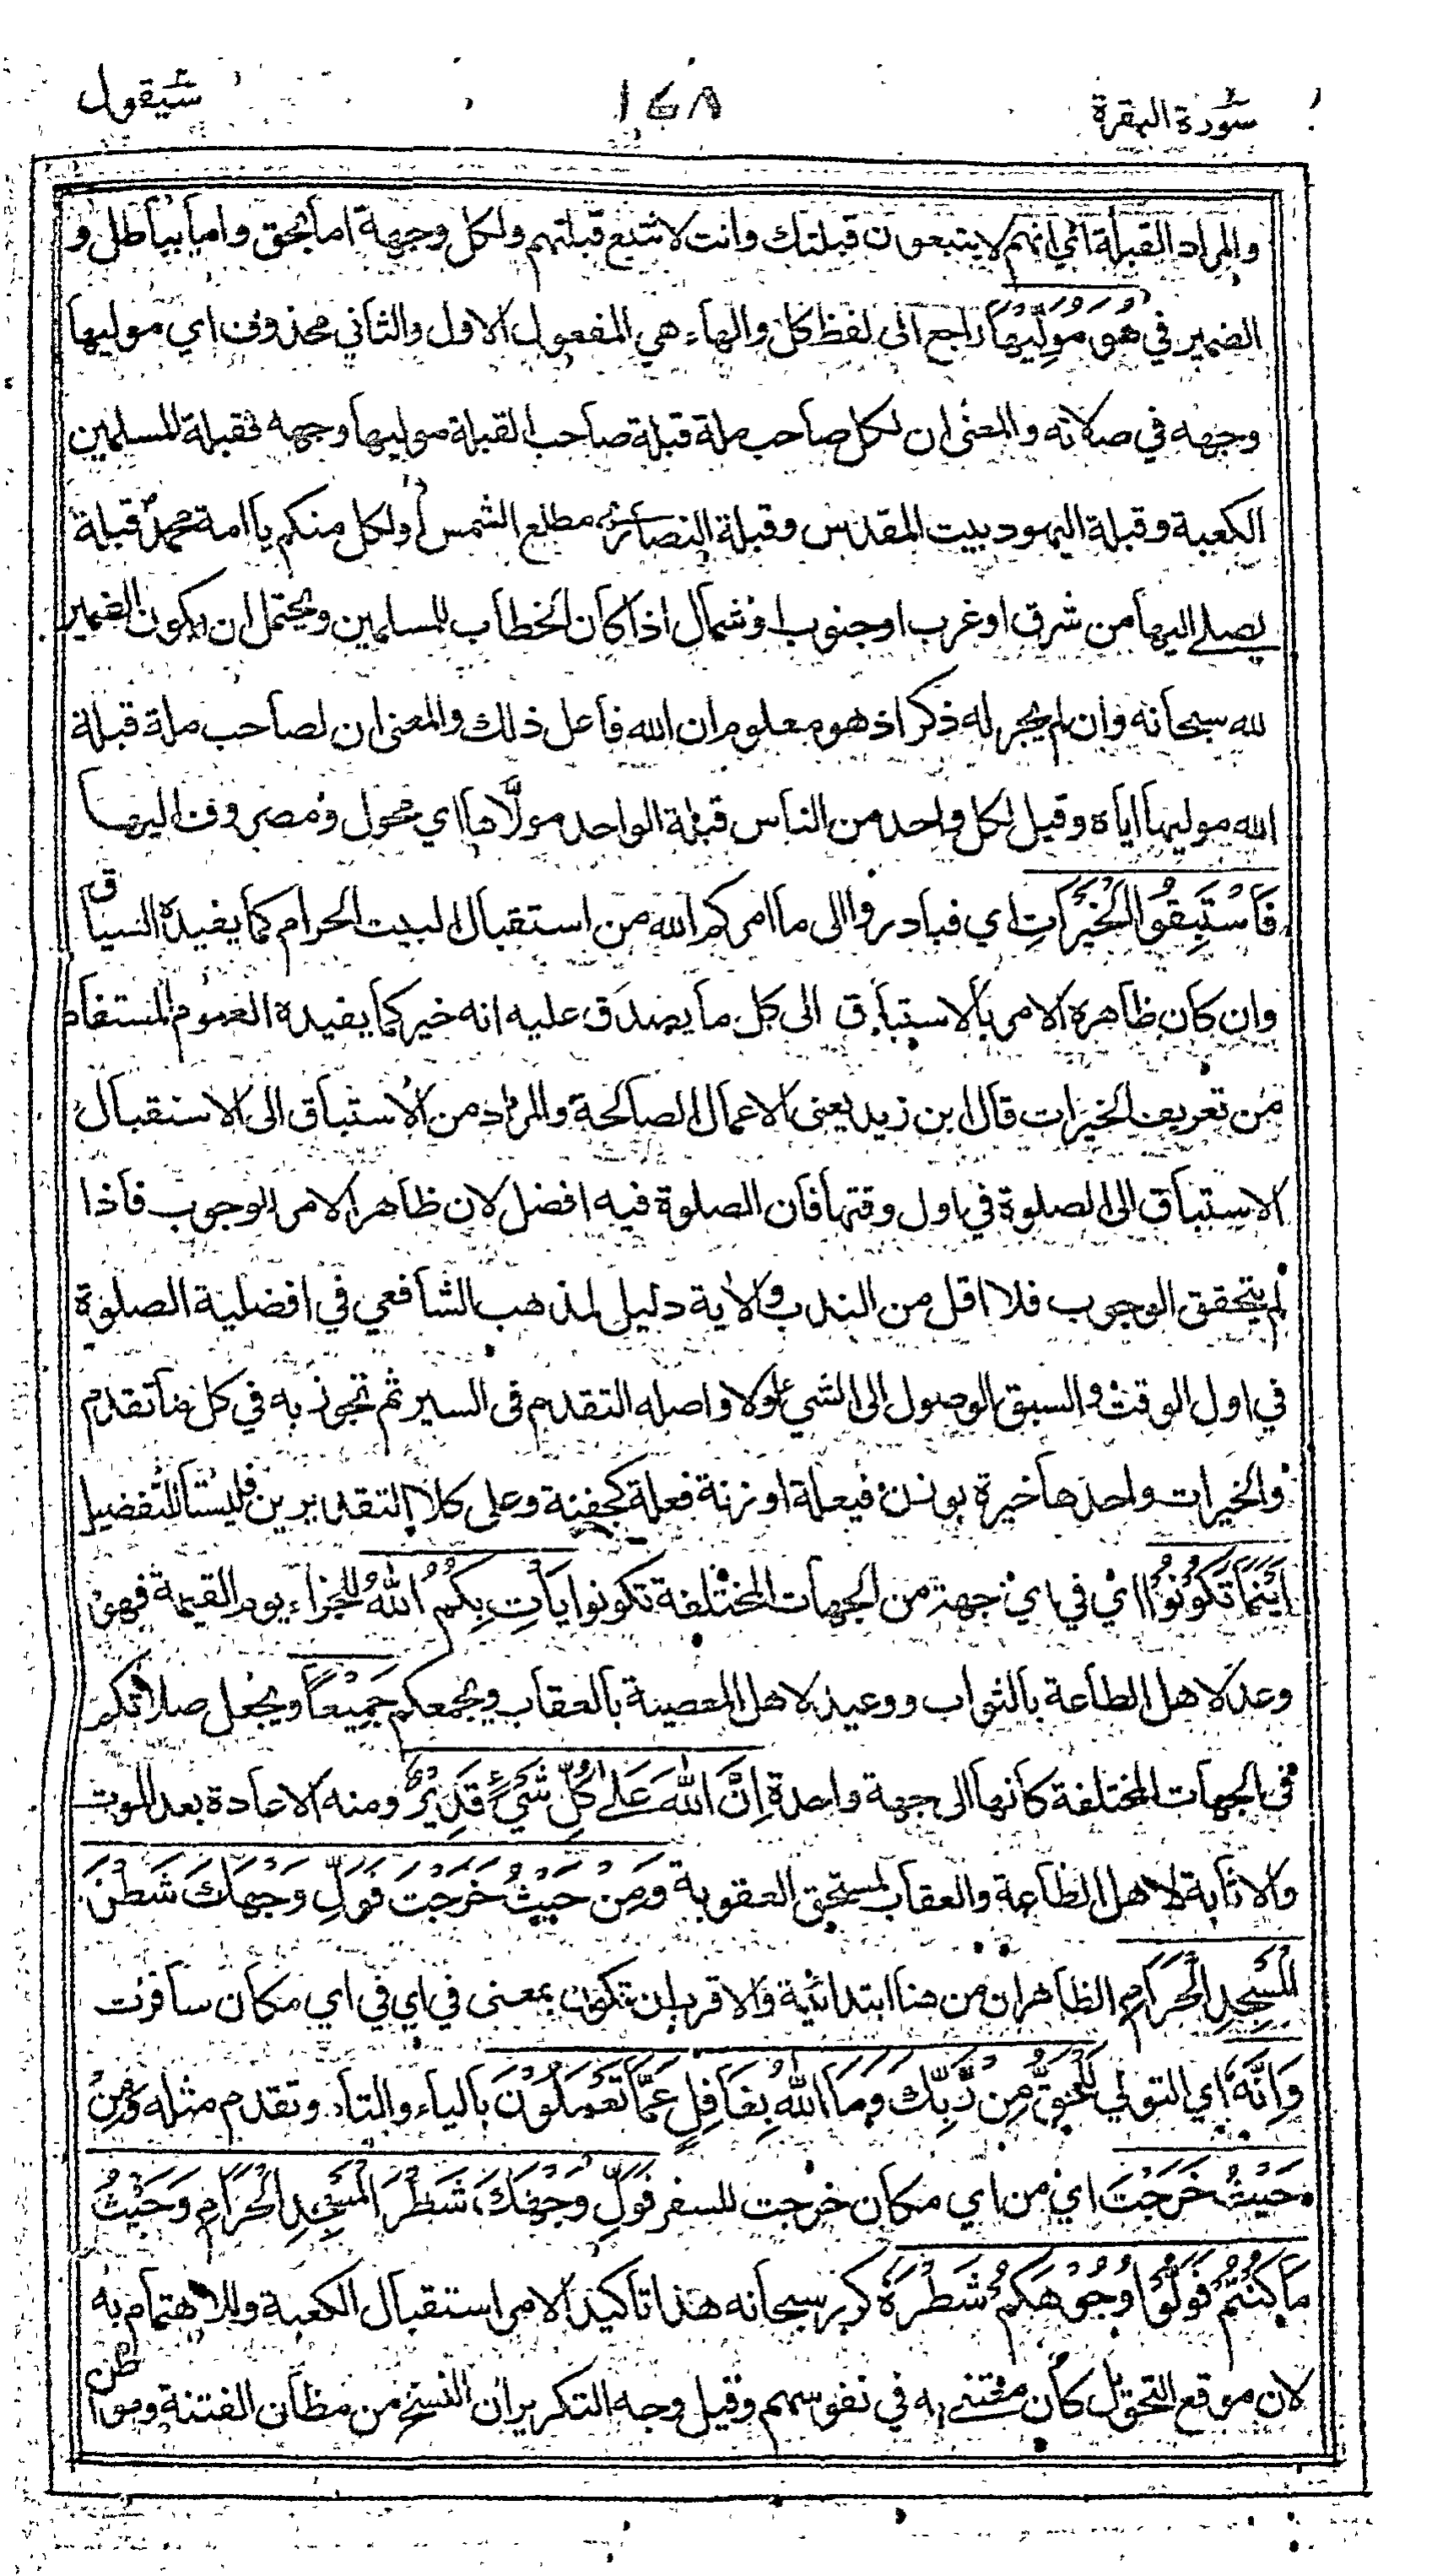 سورة البقرة ١٤٨ سيقول
والمراد القبلة اي انهم لا يتبعون قبلتك وانت لا تتبع قبلتهم ولكل وجهة اما بحق واما بباطل و
الضمير في هُوَ مُوَلِّيهَا راجع الى لفظ كل والهاء هي المفعول الاول والثاني محذوف اي موليها
وجهه في صلاته والمعنى ان لكل صاحب ملة قبلة صاحب القبلة موليها وجهه فقبلة المسلمين
الكعبة وقبلة اليهود بيت المقدس وقبلة النصارى مطلع الشمس أو لكل منكم يا امة محمد قبلة
يصلى اليها من شرق او غرب او جنوب او شمال اذا كان الخطاب للمسلمين ويحتمل ان يكون الضمير
لله سبحانه وان لم يجر له ذكر اذ هو معلوم ان الله فاعل ذلك والمعنى ان لصاحب ملة قبلة
الله موليها اياه وقيل لكل واحد من الناس قبلة الواحد مولَّاها اي محول ومصروف اليها
فَاسْتَبِقُوا الْخَيْرَاتِ اي فبادروا الى ما امركم الله من استقبال البيت الحرام كما يفيده السياق
وان كان ظاهره الامر بالاستباق الى كل ما يصدق عليه انه خير كما يفيده العموم المستفاد
من تعريف الخيرات قال ابن زيد يعنى الاعمال الصالحة والمراد من الاستباق الى الاستقبال
الاستباق الى الصلوة في اول وقتها فان الصلوة فيه افضل لان ظاهر الامر الوجوب فاذا
لم يتحقق الوجوب فلا اقل من الندب والاية دليل لمذهب الشافعي في افضلية الصلوة
في اول الوقت والسبق الوصول الى الشيء اولا واصله التقدم فى السير ثم تجوز به في كل ما تقدم
والخيرات واحدها خيرة بوزن فيعلة او زنة فعلة كجفنة وعلى كلا التقديرين فليستا للتفضيل
اَيْنَمَا تَكُونُوا اي في اي جهة من الجهات المختلفة تكونوا يَأْتِ بِكُمُ اللهُ للجزاء يوم القيمة فهو
وعد لاهل الطاعة بالثواب ووعيد لاهل المعصية بالعقاب ويجمعكم جَمِيعاً ويجعل صلاتكم
في الجهات المختلفة كأنها الى جهة واحدة اِنَّ اللهَ عَلَى كُلِّ شَيْءٍ قَدِيرٌ ومنه الاعادة بعد الموت
والاثابة لاهل الطاعة والعقاب لمستحق العقوبة وَمِنْ حَيْثُ خَرَجْتَ فَوَلِّ وَجْهَكَ شَطْرَ
الْمَسْجِدِ الْحَرَامِ الظاهر ان من هنا ابتدائية والاقرب ان تكون بمعنى في اي في اي مكان سافرت
وَاِنَّهُ اي التولي لَلْحَقُّ مِنْ رَّبِّكَ وَمَا اللهُ بِغَافِلٍ عَمَّا تَعْمَلُونَ بالياء والتاء وتقدم مثله وَمِنْ
حَيْثُ خَرَجْتَ اي من اي مكان خرجت للسفر فَوَلِّ وَجْهَكَ شَطْرَ الْمَسْجِدِ الْحَرَامِ وَحَيْثُ
مَا كُنْتُمْ فَوَلُّوا وُجُوهَكُمْ شَطْرَهُ كرر سبحانه هذا تاكيد الامر استقبال الكعبة وللاهتمام به
لان موقع التحويل كان معتنى به في نفوسهم وقيل وجه التكرير ان النسخ من مظان الفتنة ومواطن